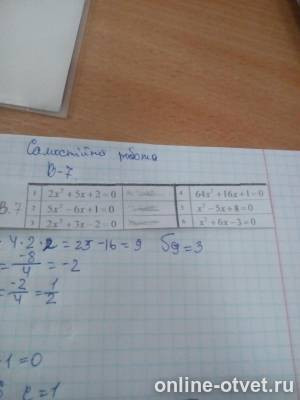 Самостійна робота
В-7
В.7
1 2x² + 5x + 2 = 0 4 64x² + 16x + 1 = 0
2 5x² − 6x + 1 = 0 5 x² − 5x + 8 = 0
3 2x² + 3x − 2 = 0 6 x² + 6x − 3 = 0
· 4·2·2 = 25 − 16 = 9 √9 = 3
= -8/4 = -2
= -2/4 = 1/2
-1 = 0
c = 1
online-otvet.ru